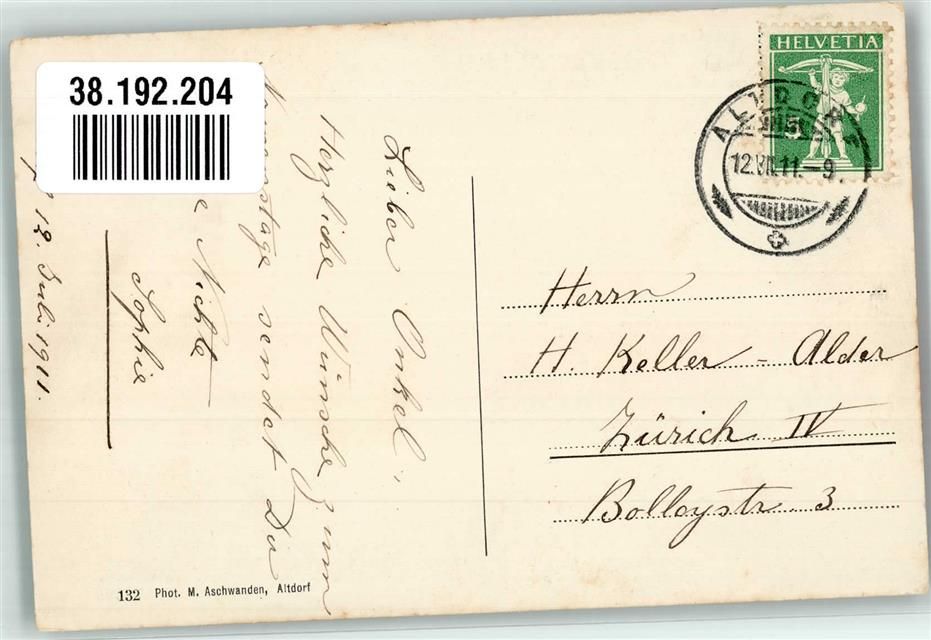 38.192.204
HELVETIA
5
ALTDORF
12.VII.11.-9
Lieber Onkel,
Herzliche Wünsche zum
Namenstage sendet Dir
Nichte
Sophie
12. Juli 1911.
Herrn
H. Keller - Alder
Zürich IV
Bolleystr. 3
132 Phot. M. Aschwanden, Altdorf